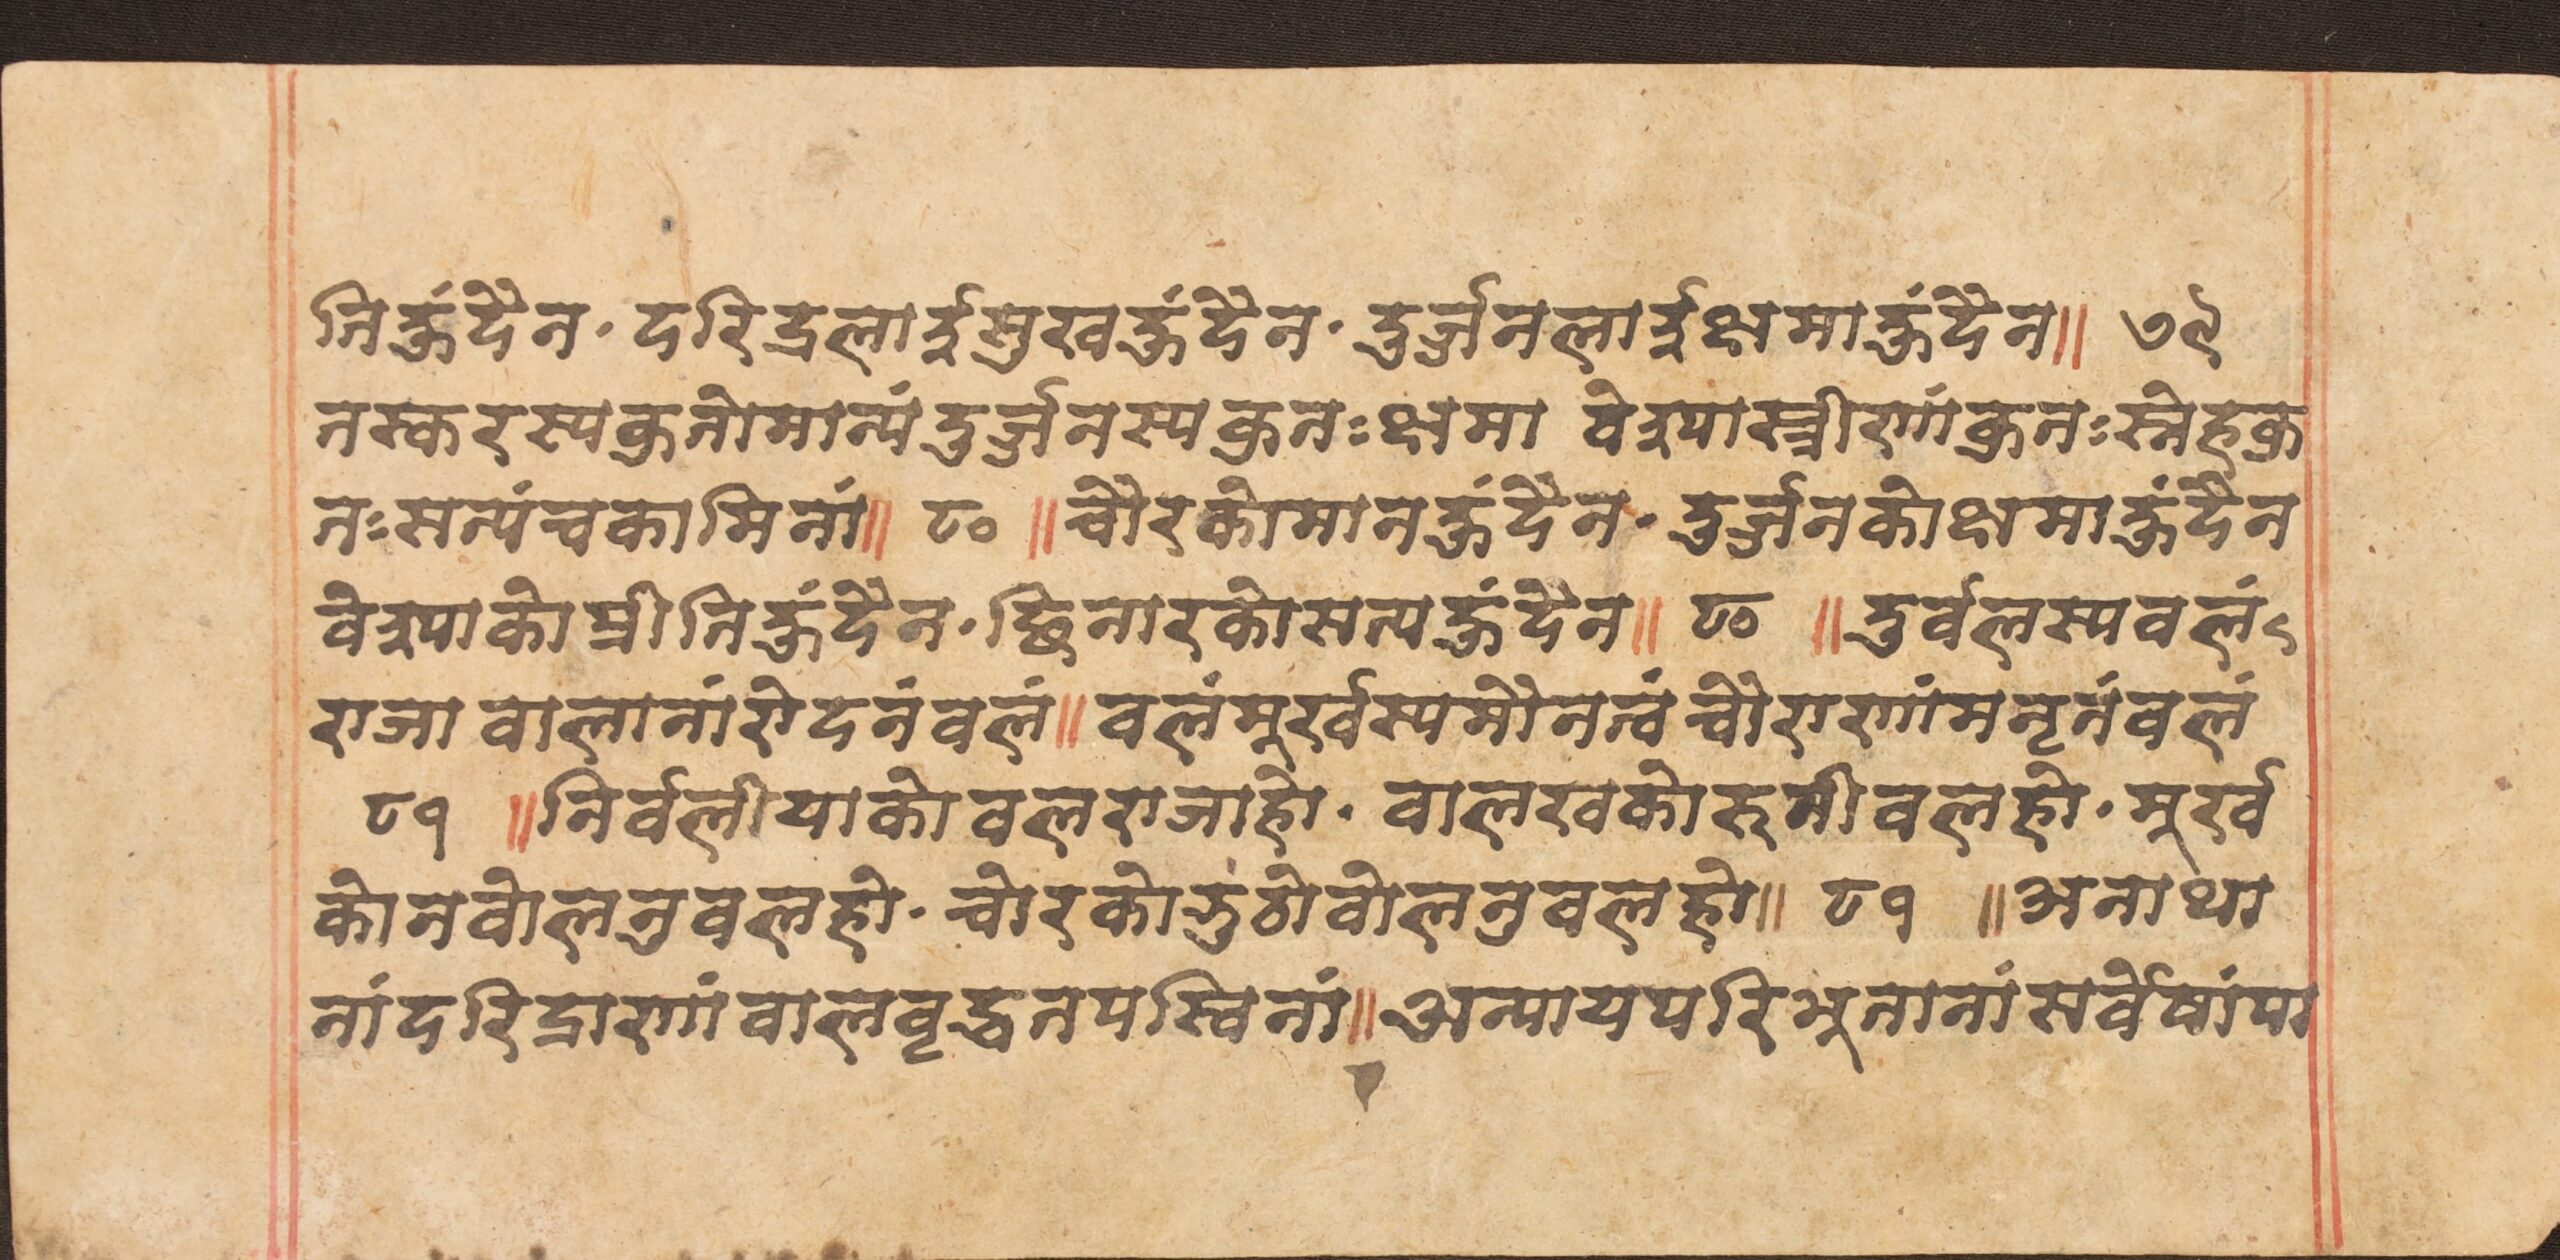 निहुंदैन · दरिद्रलाईसुखहुंदैन · दुर्ज्जनलाईक्षमाहुंदैन॥ ७९
तस्करस्यकुतोमान्यंदुर्ज्जनस्यकुतःक्षमा वेश्यास्त्रीणांकुतःस्नेहकु
तःसत्यंचकामिनां॥ ८० ॥चौरकोमानहुंदैन · दुर्ज्जनकोक्षमाहुंदैन
वेश्याकोप्रीतिहुंदैन · छिनारकोसत्यहुंदैन॥ ८० ॥दुर्वलस्यवलं
राजा वालानांरोदनंवलं॥ वलंमूर्खस्यमौनत्वं चौराणांमनृतंवलं
८१ ॥निर्वलीयाकोवलराजाहो · वालखकोरुनीवलहो · मूर्ख
कोनवोलनुवलहो · चोरकोझुठोवोलनुवलहो॥ ८१ ॥अनाथा
नांदरिद्राणांवालवृद्धतपस्विनां॥ अन्यायपरिभूतानांसर्वेषांपा